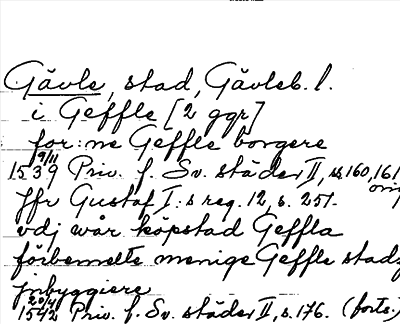 Gävle, stad, Gävleb. l.
i Geffle [2 ggr]
for:ne Geffle borgere
1539 9/11 Priv. f. Sv. städer II, s. 160, 161
Jfr Gustaf I:s reg. 12, s. 251.
vdj wår köpstad Geffla
förbemelte menige Geffle stads
jnbyggiere
1542 20/4 Priv. f. Sv. städer II, s. 176. (forts.)